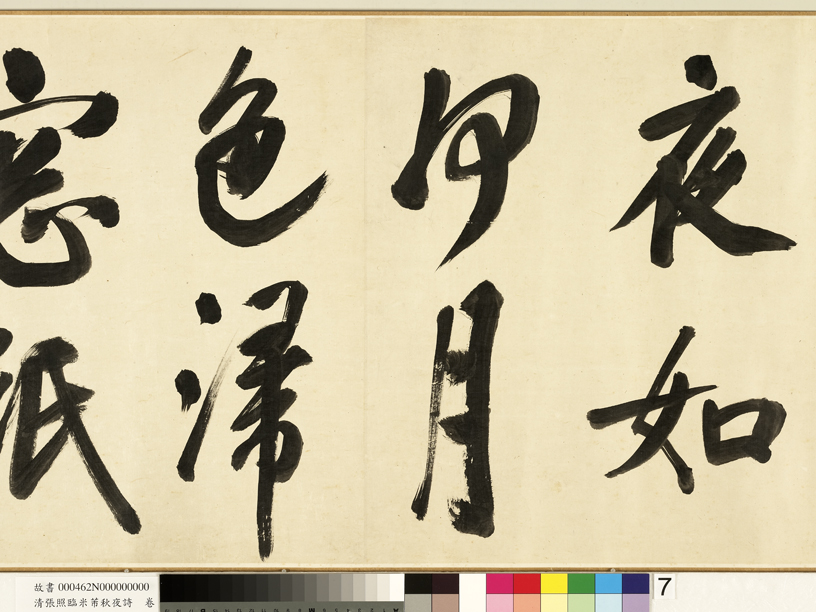 夜如
何月
色歸
窓紙
故書 000462N000000000
清張照臨米芾秋夜詩　卷
7